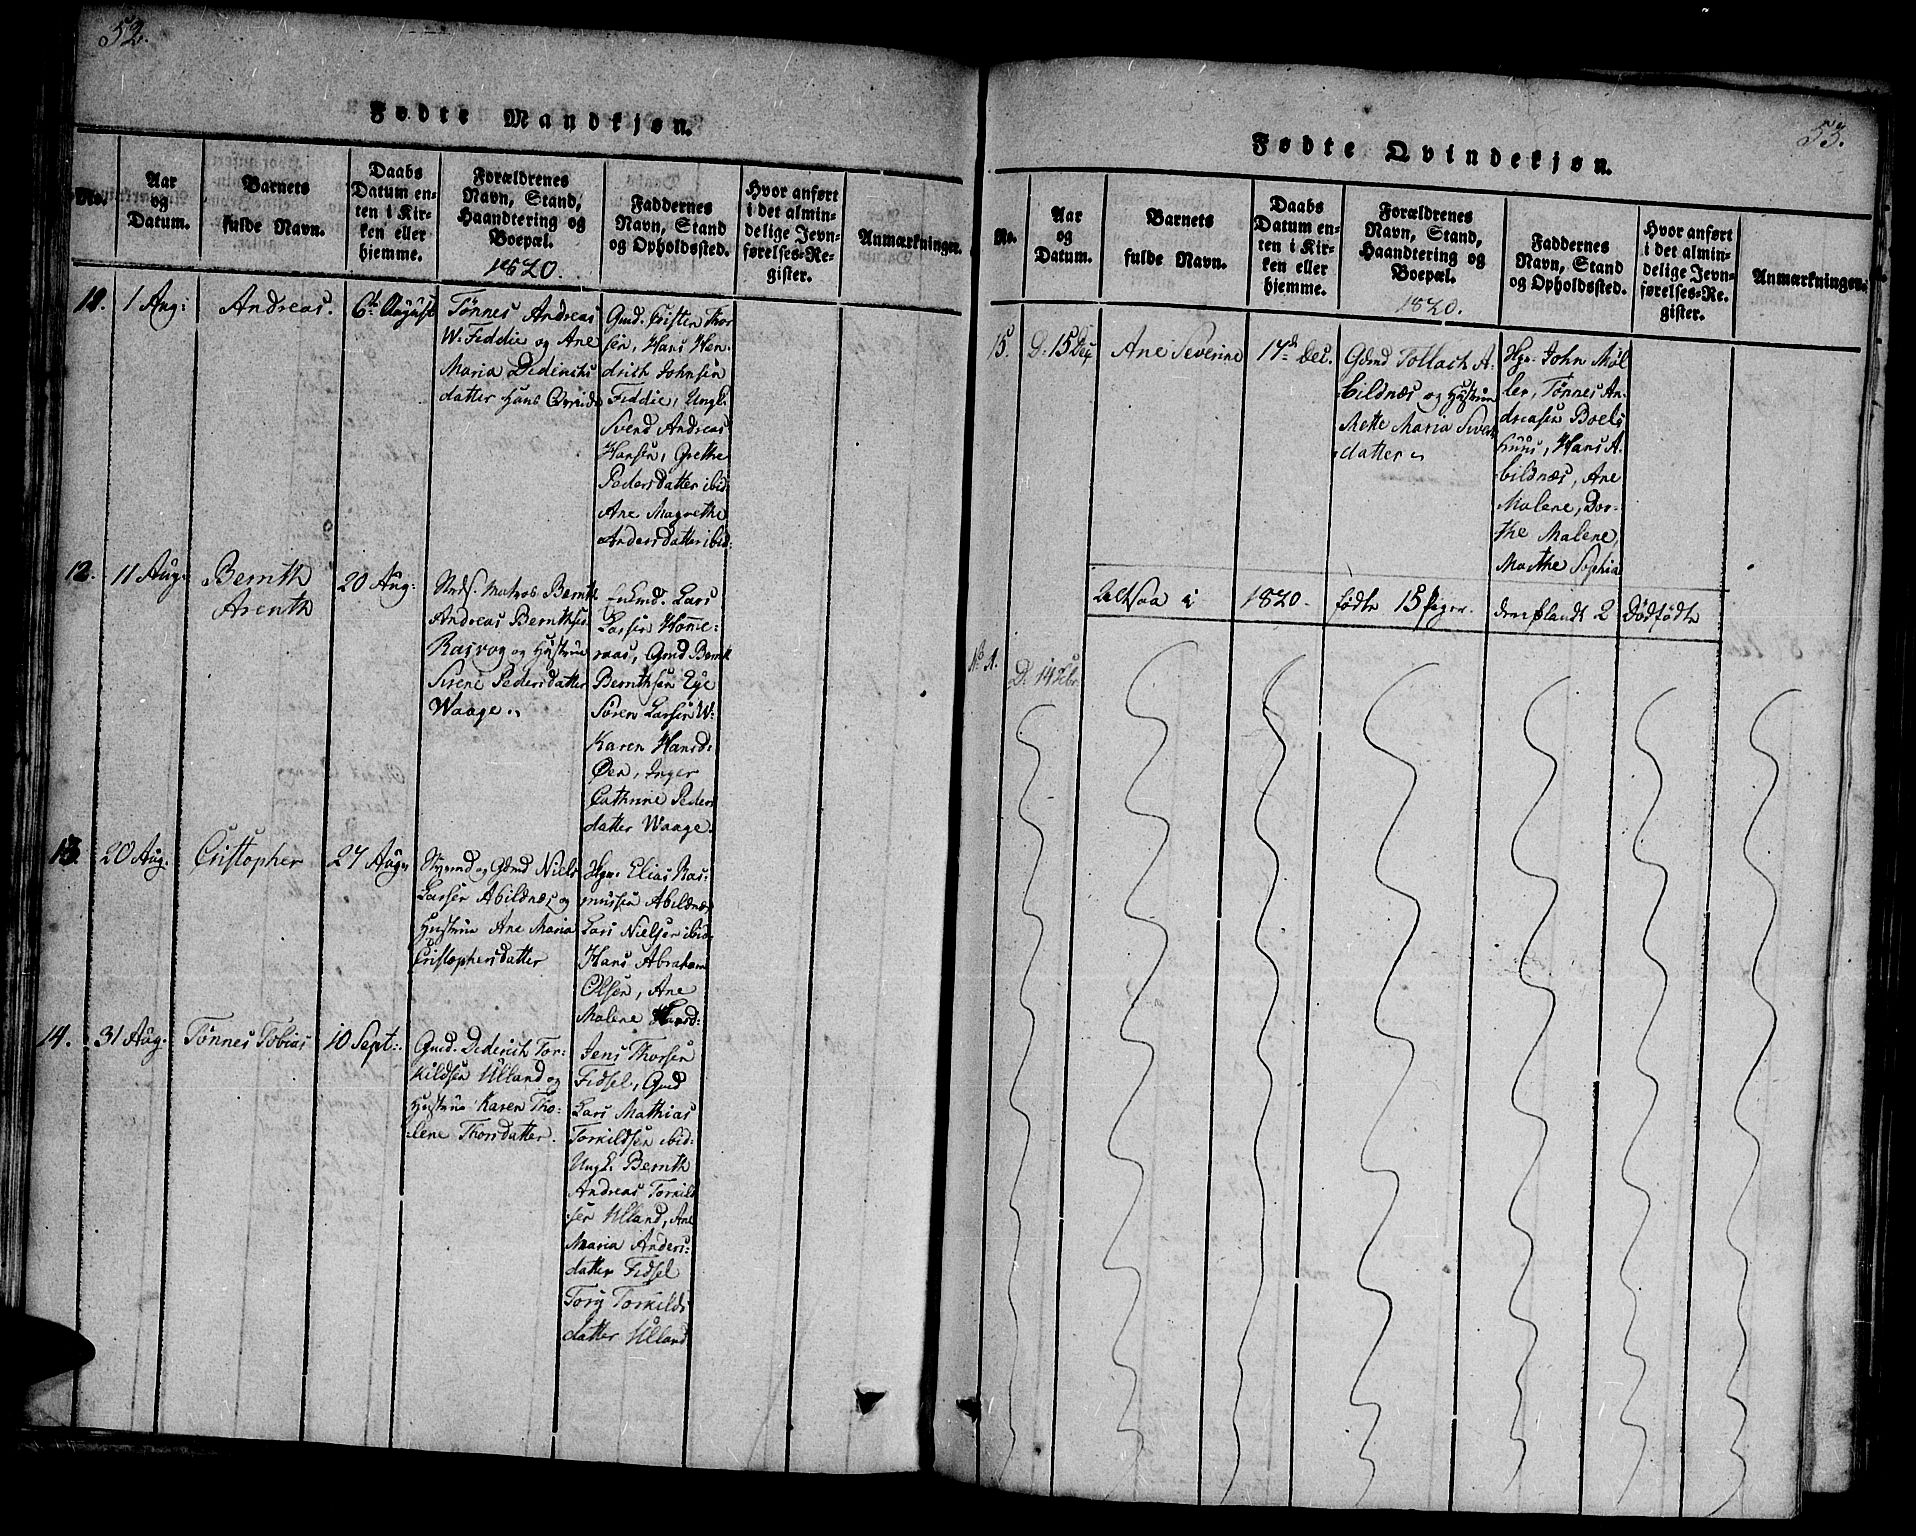 52.
Fødte Mandkjøn.
No.
Aar
og
Datum.
Barnets
fulde Navn.
Daabs
Datum en-
ten i Kir-
ken eller
hjemme.
Forældrenes
Navn, Stand,
Haandtering og
Boepæl.
1820.
Faddernes
Navn, Stand
og Opholdssted.
Hvor anført
i det almin-
delige Jevn-
førelses-Re-
gister.
Anmærkninger.
1 Aug:
Andreas.
6te August
Tønnes Andreas
W. Feddie og Ane
Maria Dederichs
datter hans Qvinde
Gmd. Cristen Thor
sen, Hans Hen-
drich Johnsen
Feddie, Ungk.
Svend Andreas
Hansen, Grethe
Pedersdatter ibid
Ane Magrethe
Andersdatter ibid:
12.
11 Aug:
Bernth
Arenth
20 Aug:
Matros Bernth
Andreas Bernthsen
Rasvog og Hustrue
Sirene Pedersdatter
Waage.
Lars
Larsen Homme-
raas, Gmd Bernt
Bernthsen Eye
Søren Larsen W.
Karen Hansd:
Øen, Inger
Cathrine Peders
datter Waage.
13.
20 Aug.
Cristopher
27 Aug:
Styrmd og Gmd Niels
Larsen Abildnæs og
Hustrue Ane Maria
Cristophersdatter
Hgr. Elias Ras-
mussen Abildnæs
Lars Nielsen ibid.
Hans Abraham
Olsen, Ane
Malene Hansd:
14.
31 Aug.
Tønnes Tobias
10 Sept:
Gmd. Dederich Tor-
kildsen Ulland og
Hustrue Karen Tho-
lene Thorsdatter.
Jens Thorsen
Fidsel, Gmd
Lars Mathias
Torkildsen ibid:
Ungk. Bernth
Andreas Torkild
sen Ulland, Ane
Maria Anders-
datter Fidsel
Torg Torkilds
datter Ulland
53.
Fødte Qvindekjøn.
No.
Aar
og
Datum.
Barnets
fulde Navn.
Daabs
Datum en-
ten i Kir-
ken eller
hjemme.
Forældrenes
Navn, Stand,
Haandtering og
Boepæl.
1820.
Faddernes
Navn, Stand
og Opholdssted.
Hvor anført
i det almin-
delige Jevn-
førelses-Re-
gister.
Anmærkninger.
15.
D. 15 Dec
Ane Severine
17de Dec.
Gmd Tollach A-
bildnæs og Hustrue
Mette Maria Siverts
datter
Hgr. John Møl
ler, Tønnes An-
dreasen Boels
huus, Hans A-
bildnæs, Ane
Malene, Dor-
the Malene,
Marthe Sophia
Altsaa i
1820.
fødte
15 Piger.
deriblandt 2
Dødfødte